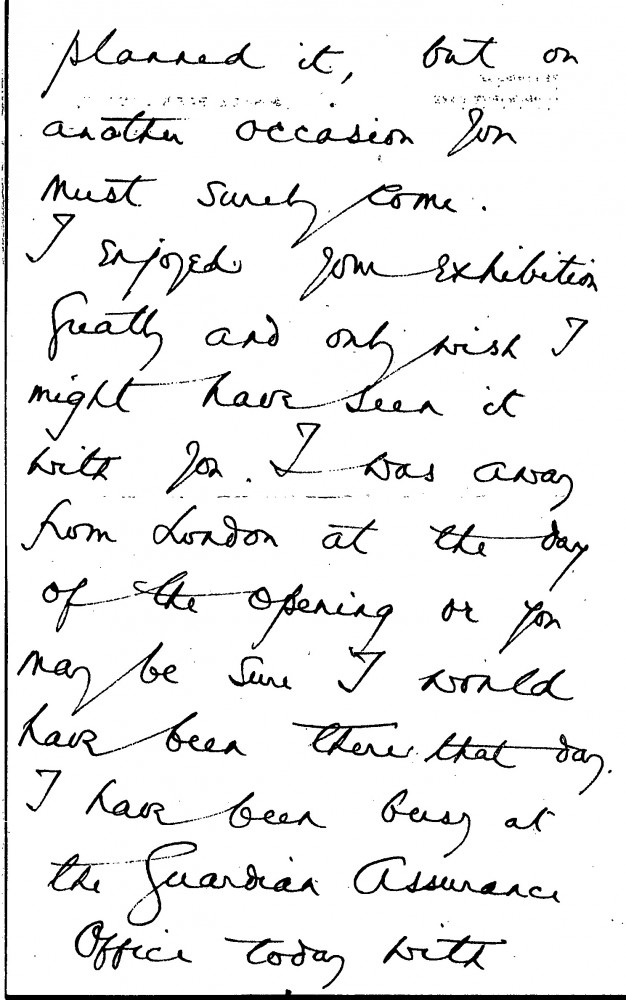 planned it, but on
another occasion you
must surely come.
I enjoyed your exhibition
greatly and only wish I
might have seen it
with you. I was away
from London at the day
of the opening or you
may be sure I would
have been there that day.
I have been busy at
the Guardian Assurance
Office today with